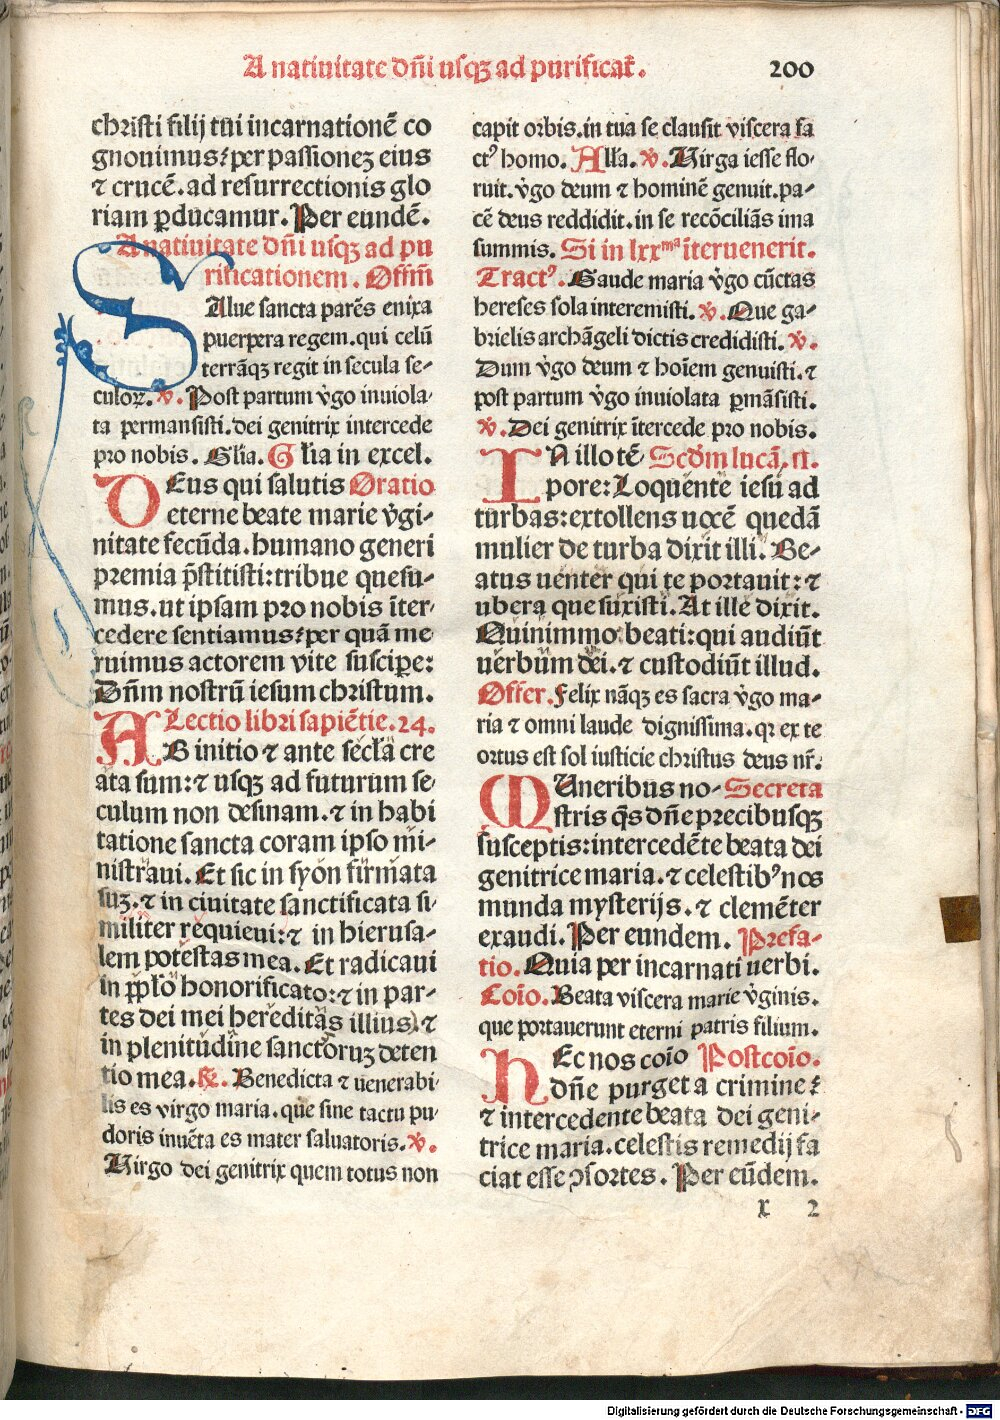 A natiuitate dñi usqꝫ ad purificat̃.
200
christi filij tui incarnationẽ co
gnouimus: per passionez eius
⁊ crucẽ. ad resurrectionis glo
riam ꝑducamur. Per eundẽ.
A natiuitate dñi usqꝫ ad pu
rificationem. Offm̃
SAlue sancta parẽs enixa
puerpera regem. qui celũ
terrãqꝫ regit in secula se-
culoꝝ. ꝟ. Post partum ꝟgo inuiola-
ta permansisti. dei genitrix intercede
pro nobis. Gl̃ia. Gl̃ia in excel.
DEus qui salutis Oratio
eterne beate marie ꝟgi-
nitate fecũda. humano generi
premia p̃stitisti: tribue quesu-
mus. ut ipsam pro nobis ĩter-
cedere sentiamus: per quã me-
ruimus actorem vite suscipe:
Dñm nostrũ iesum christum.
Lectio libri sapiẽtie. 24.
AB initio ⁊ ante sec̃la cre
ata sum: ⁊ usqꝫ ad futurum se-
culum non desinam. ⁊ in habi
tatione sancta coram ipso mi-
nistraui. Et sic in syon firmata
suꝫ. ⁊ in ciuitate sanctificata si-
militer requieui: ⁊ in hierusa-
lem potestas mea. Et radicaui
in pp̃lo honorificato: ⁊ in par-
tes dei mei hereditas illius. ⁊
in plenitudine sanctoruꝫ deten
tio mea. ℟. Benedicta ⁊ uenerabi-
lis es virgo maria. que sine tactu pu-
doris inuẽta es mater saluatoris. ꝟ.
Uirgo dei genitrix quem totus non
capit orbis. in tua se clausit viscera fa
ctꝰ homo. All̃a. ꝟ. Uirga iesse flo-
ruit. ꝟgo deum ⁊ hominẽ genuit. pa-
cẽ deus reddidit. in se recõciliãs ima
summis. Si in lxxᵐᵃ ĩteruenerit.
Tractꝰ. Gaude maria ꝟgo cũctas
hereses sola interemisti. ꝟ. Que ga-
brielis archãgeli dictis credidisti. ꝟ.
Dum ꝟgo deum ⁊ hoĩem genuisti. ⁊
post partum ꝟgo inuiolata ꝑmãsisti.
ꝟ. Dei genitrix ĩtercede pro nobis.
IN illo tẽ- Scd̃m lucã. 11.
pore: Loquente iesu ad
turbas: extollens uocẽ quedã
mulier de turba dixit illi. Be-
atus uenter qui te portauit: ⁊
ubera que suxisti. At ille dixit.
Quinimmo beati: qui audiũt
uerbum dei. ⁊ custodiũt illud.
Offer. Felix nãqꝫ es sacra ꝟgo ma-
ria ⁊ omni laude dignissima. qꝛ ex te
ortus est sol iusticie christus deus nr̃.
MUneribus no- Secreta
stris q̃s dñe precibusqꝫ
susceptis: intercedẽte beata dei
genitrice maria. ⁊ celestibꝰ nos
munda mysterijs. ⁊ clemẽter
exaudi. Per eundem. Prefa-
tio. Quia per incarnati uerbi.
Coĩo. Beata viscera marie ꝟginis.
que portauerunt eterni patris filium.
HEc nos coĩo Postcoĩo.
dñe purget a crimine:
⁊ intercedente beata dei geni-
trice maria. celestis remedij fa
ciat esse ꝯsortes. Per eũdem.
x 2
Digitalisierung gefördert durch die Deutsche Forschungsgemeinschaft - DFG